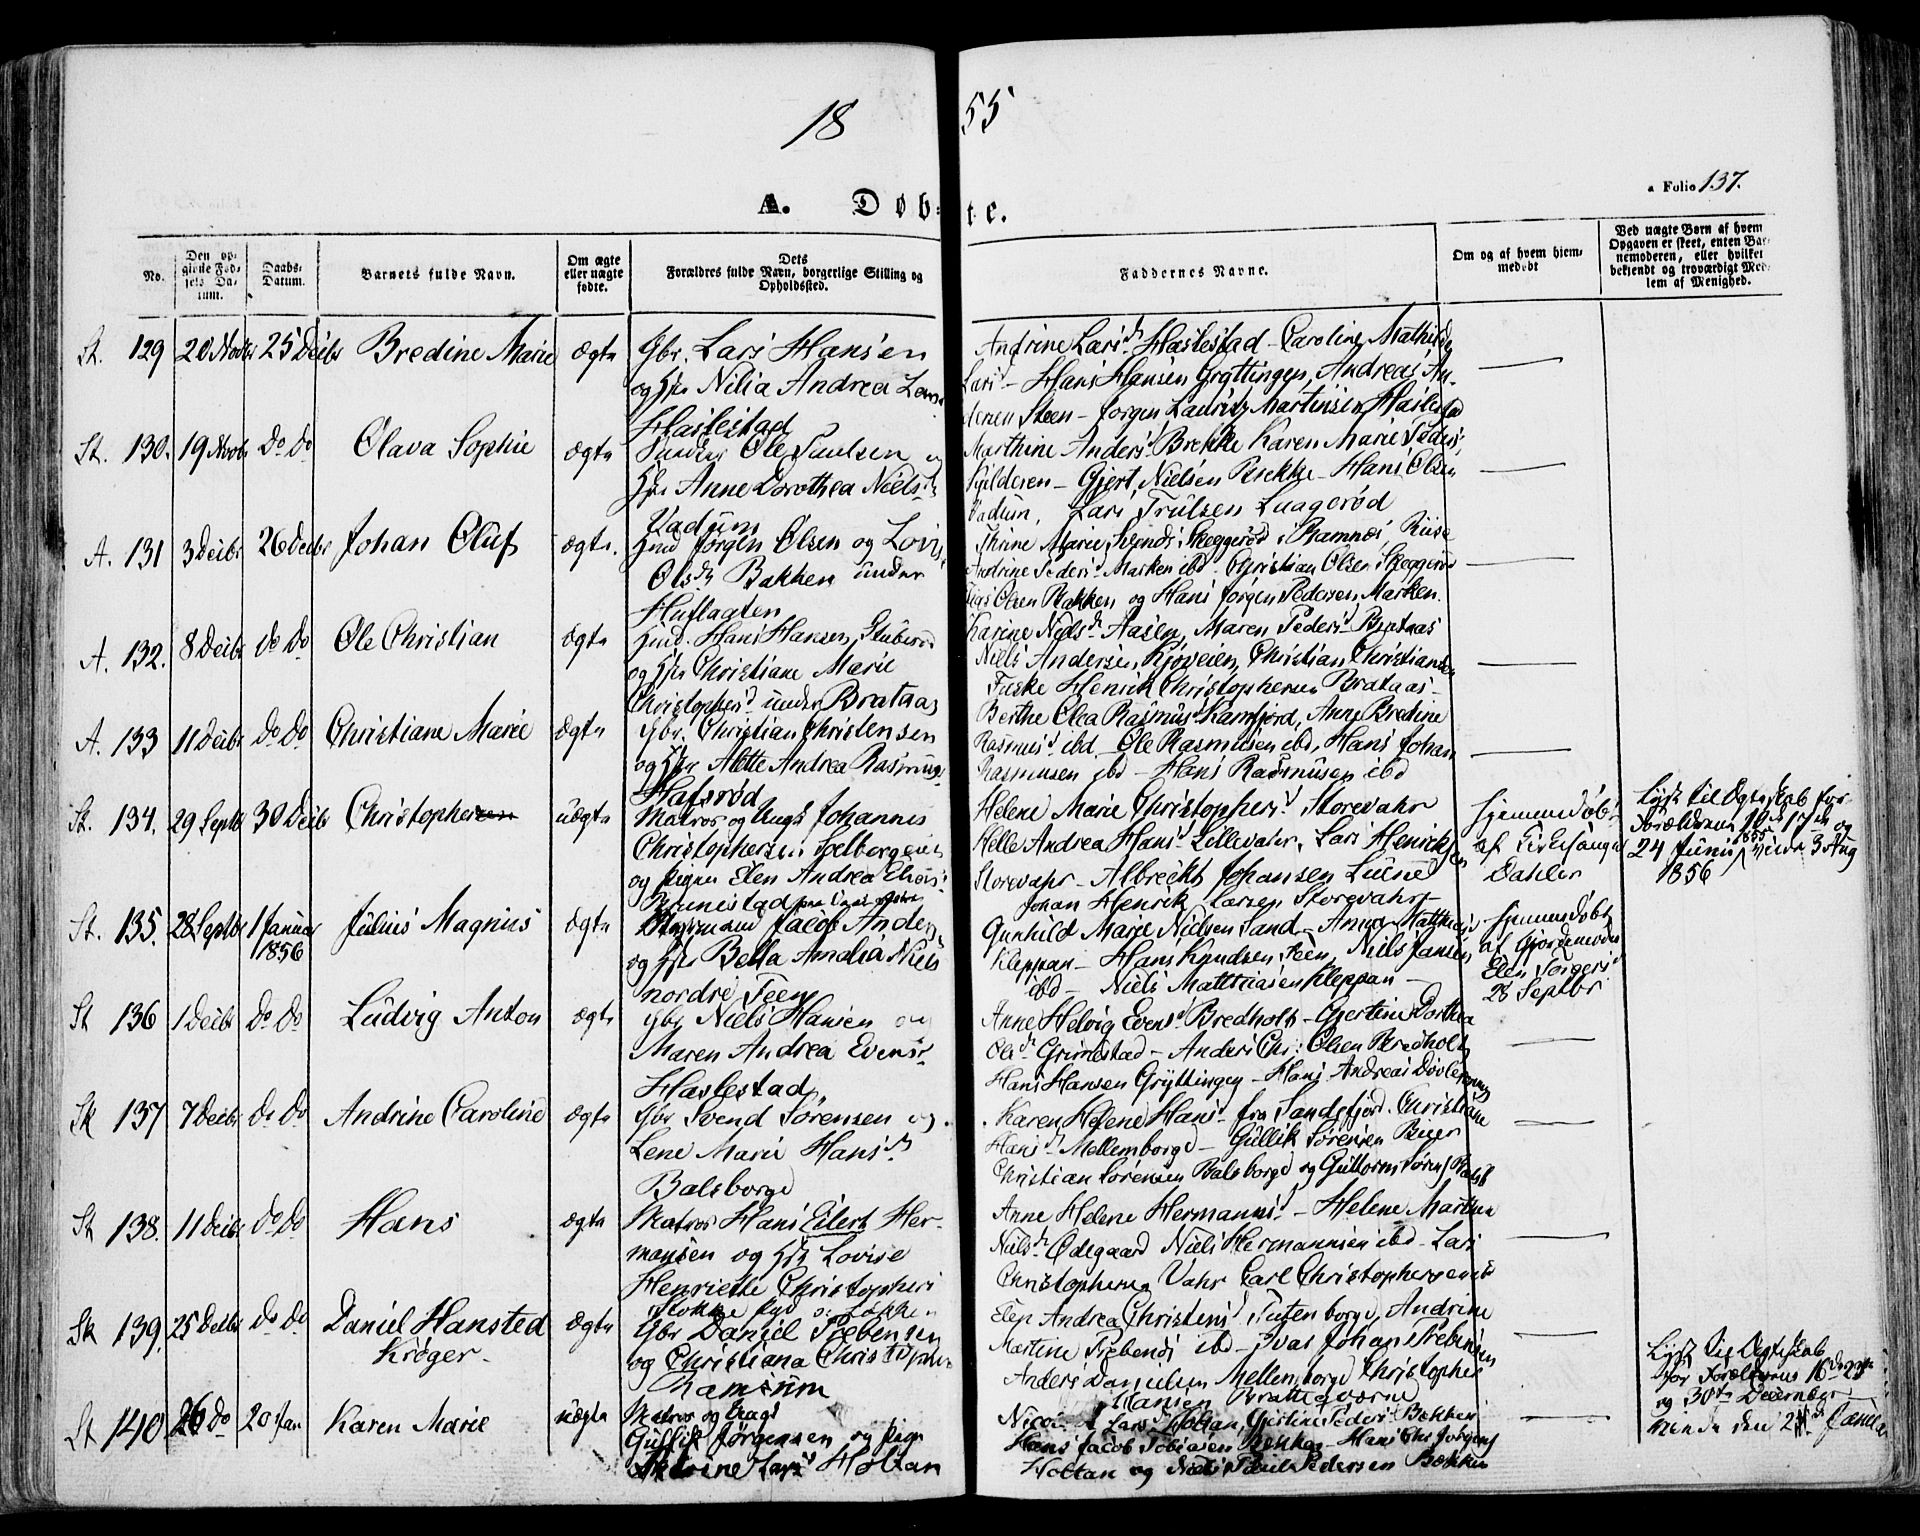 18 55
a Folio 137.
A. Døbte.
No.
Den opgivne Fødsels Datum.
Daabs-Datum.
Barnets fulde Navn.
Om ægte eller uægte fødte.
Dets Forældres fulde Navn, borgerlige Stilling og Opholdssted.
Faddernes Navne.
Om og af hvem hjemmedøbt
Ved uægte Børn af hvem Opgaven er skeet, enten Barnemoderen, eller hvilket bekjendt og troværdigt Medlem af Menighed.
St. 129 20 Novbr 25 Decbr Bredine Marie ægte
Gbr. Lars Hansen
og Hst Nilia Andrea Lars
Haslestad
Andrine Larsd Haslestad - Caroline Mathilde
Larsd - Hans Hansen Gryttingen, Andreas An-
dersen Steen - Jørgen Lauritz Martinsen Haslestad
St. 130. 19 Novbr do do Olava Sophie ægte
Ole Paulsen og
Hst Anne Dorothea Nielsd
Vadum
Marthine Andersd Brekke Karen Marie Pedersd
Kjilderen - Gjert Nielsen Brekke - Hans Olsen
Vadum, Lars Trulsen Luagerød
A. 131 3 Decbr 26 Decbr Johan Oluf ægte.
Hmd Jørgen Olsen og Lovise
Olsdr Bakken under
Huflaaten
Thrine Marie Svendsd Skeggerød i Ramnes, Riise
Andrine Pedersd Marken ibd. Christian Olsen Skeggerød
Olsen Bakken og Hans Jørgen Pedersen Marken.
A. 132. 8 Decbr do do Ole Christian ægte
Hmd. Hans Hansen Stuberød
og Hst Christiane Marie
Christophersd under Brataas
Karine Nielsdr Aasen, Maren Pedersd Brataas
Niels Andersen Kjøveien, Christian Christiansen
Faske Henrik Christophersen Brataas -
A. 133 11 Decbr do do Christiane Marie ægte
Gbr. Christian Christensen
og Hst Alette Andrea Rasmus
Hafsrød
Berthe Olea Rasmusd Ramfjord, Anne Bredine
Rasmusd ibd - Ole Rasmussen ibd, Hans Johan
Rasmusen ibd - Hans Rasmusen ibd
St. 134. 29 Septbr 30 Decbr Christopher uægte
Matros og Ungk Johannes
Christophersen Solborgeien
og Pigen Elen Andrea Eliasd
Brunestad
Helene Marie Christophersd Storevahr
Helle Andrea Hansd Lillevahr, Lars Henriksen
Storevahr - Albrecht Johansen Lunne
Johan Henrik Larsen Storevahr
Hjemmedøbt
af Kirkesanger
Dahler
Lyst til Ægteskab for
Forældrene 10de 17de og
24 Juni 1855, viede 3 Aug
1856
St. 135. 28 Septbr 1 Januar 1856 Julius Magnus ægte
Jacob Anders
og Hst Bella Amalia Niels
nordre Feen
Gunhild Marie Nielsen Sand - Anne Matthiasd
Kleppan - Hans Knudsen Feen, Niels Jansen
ibd - Niels Matthiasen Kleppan -
Hjemmedøbt
af Gjordemoder
Elen Torgersd
28 Septbr
St 136 1 Decbr do do Ludvig Anton ægte
Gbr Niels Hansen og
Maren Andrea Evensd
Haslestad
Anne Helvig Evensd Bredholt - Gjertine Dorthea
Olsdr Grimestad - Anders Chr. Olsen Bredholt
Hans Hansen Gryttingen - Hans Andreas Døvle
Sk 137 7 Decbr do do Andrine Caroline ægte
Gbr Svend Sørensen og
Lene Marie Hansdr
Balsborge
Karen Helene Hansd fra Sandefjord. Christiane
Hansdr Mellemborge - Gullik Sørensen Bier
Christian Sørensen Balsborge og Guttorm Sørens
St 138. 11 Decbr do do Hans ægte
Matros Hans Eilert Her-
mansen og Hst Lovise
Henriette Christophers
Anne Helene Hermansd - Helene Marthea
Nielsdr Ødegaard Niels Hermannsen ibd - Lars
Christophersen Vahr Carl Christophersen ibd
Sk 139. 25 Decbr do do Daniel Hansted Krøger - ægte
Gbr Daniel Trebensen
og Christiana Christopher
Ramsum
Elen Andrea Christensd Tutenborge, Andrine
Martine Trebensd ibd - Ivar Johan Trebensen
Anders Danielsen Mellemborge Christopher
Hansen Bratteqværne
St 140 26 do 20 Jan Karen Marie uægte
Matros og Ungk
Gullik Jørgensen og Pige
Larsd Holtan
Larsd Holtan, Gjertine Pedersd Bekken
Hans Jacob Tobiasen Bekken - Hans Chr Jørgens
Holtan og Niels Paul Pedersen Bekken
Lyst til Ægteskab
for Forældrene 16de 23de
og 30te December